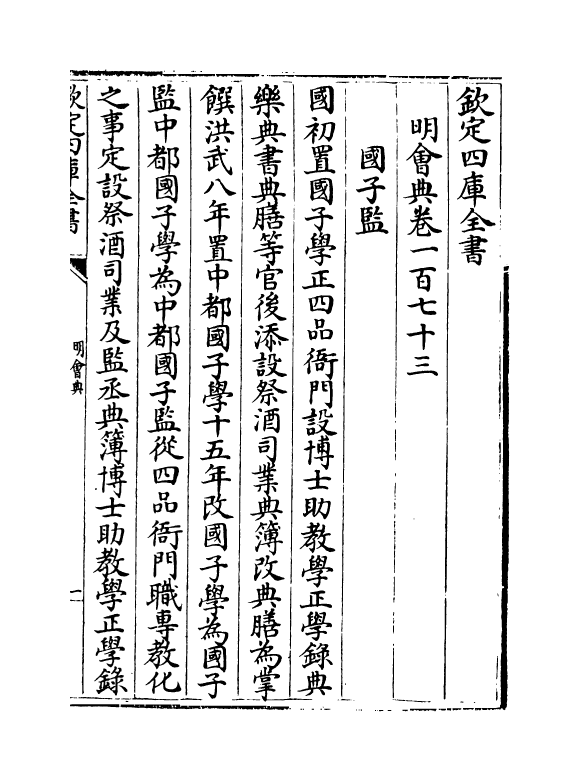 欽定四庫全書
明會典卷一百七十三
國子監
國初置國子學正四品衙門設博士助教學正學錄典
樂典書典膳等官後添設祭酒司業典簿改典膳為掌
饌洪武八年置中都國子學十五年改國子學為國子
監中都國子學為中都國子監從四品衙門職專教化
之事定設祭酒司業及監丞典簿博士助教學正學錄
欽定四庫全書
明會典
一